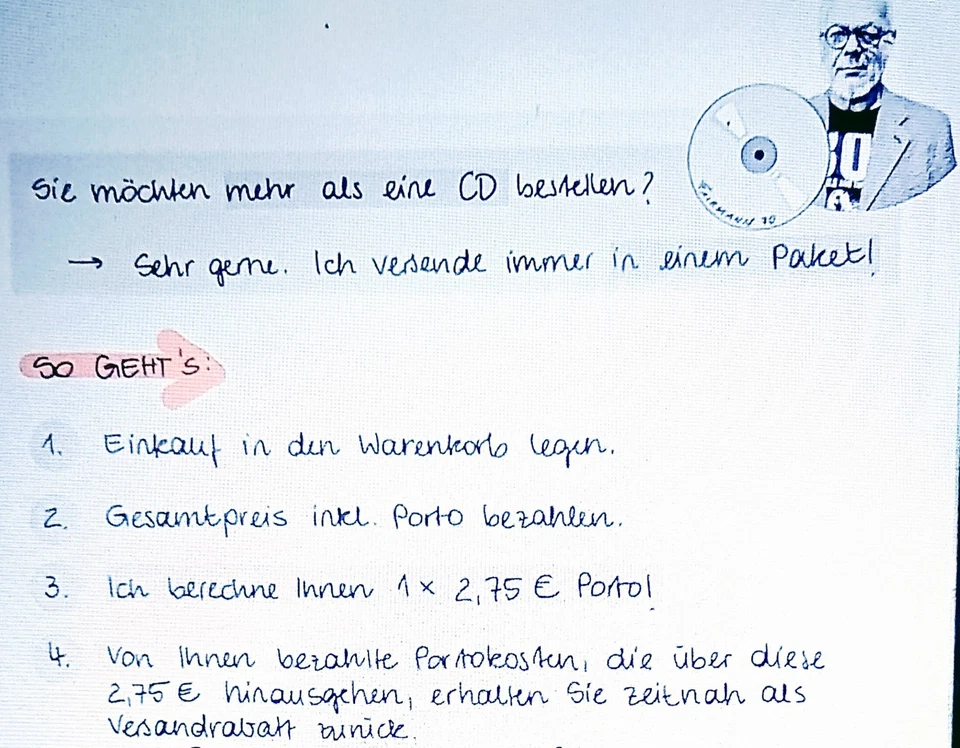 Sie möchten mehr als eine CD bestellen?
→ Sehr gerne. Ich versende immer in einem Paket!
SO GEHT'S:
1. Einkauf in den Warenkorb legen.
2. Gesamtpreis inkl. Porto bezahlen.
3. Ich berechne Ihnen 1 x 2,75 € Porto!
4. Von Ihnen bezahlte Portokosten, die über diese
2,75 € hinausgehen, erhalten Sie zeitnah als
Versandrabatt zurück.